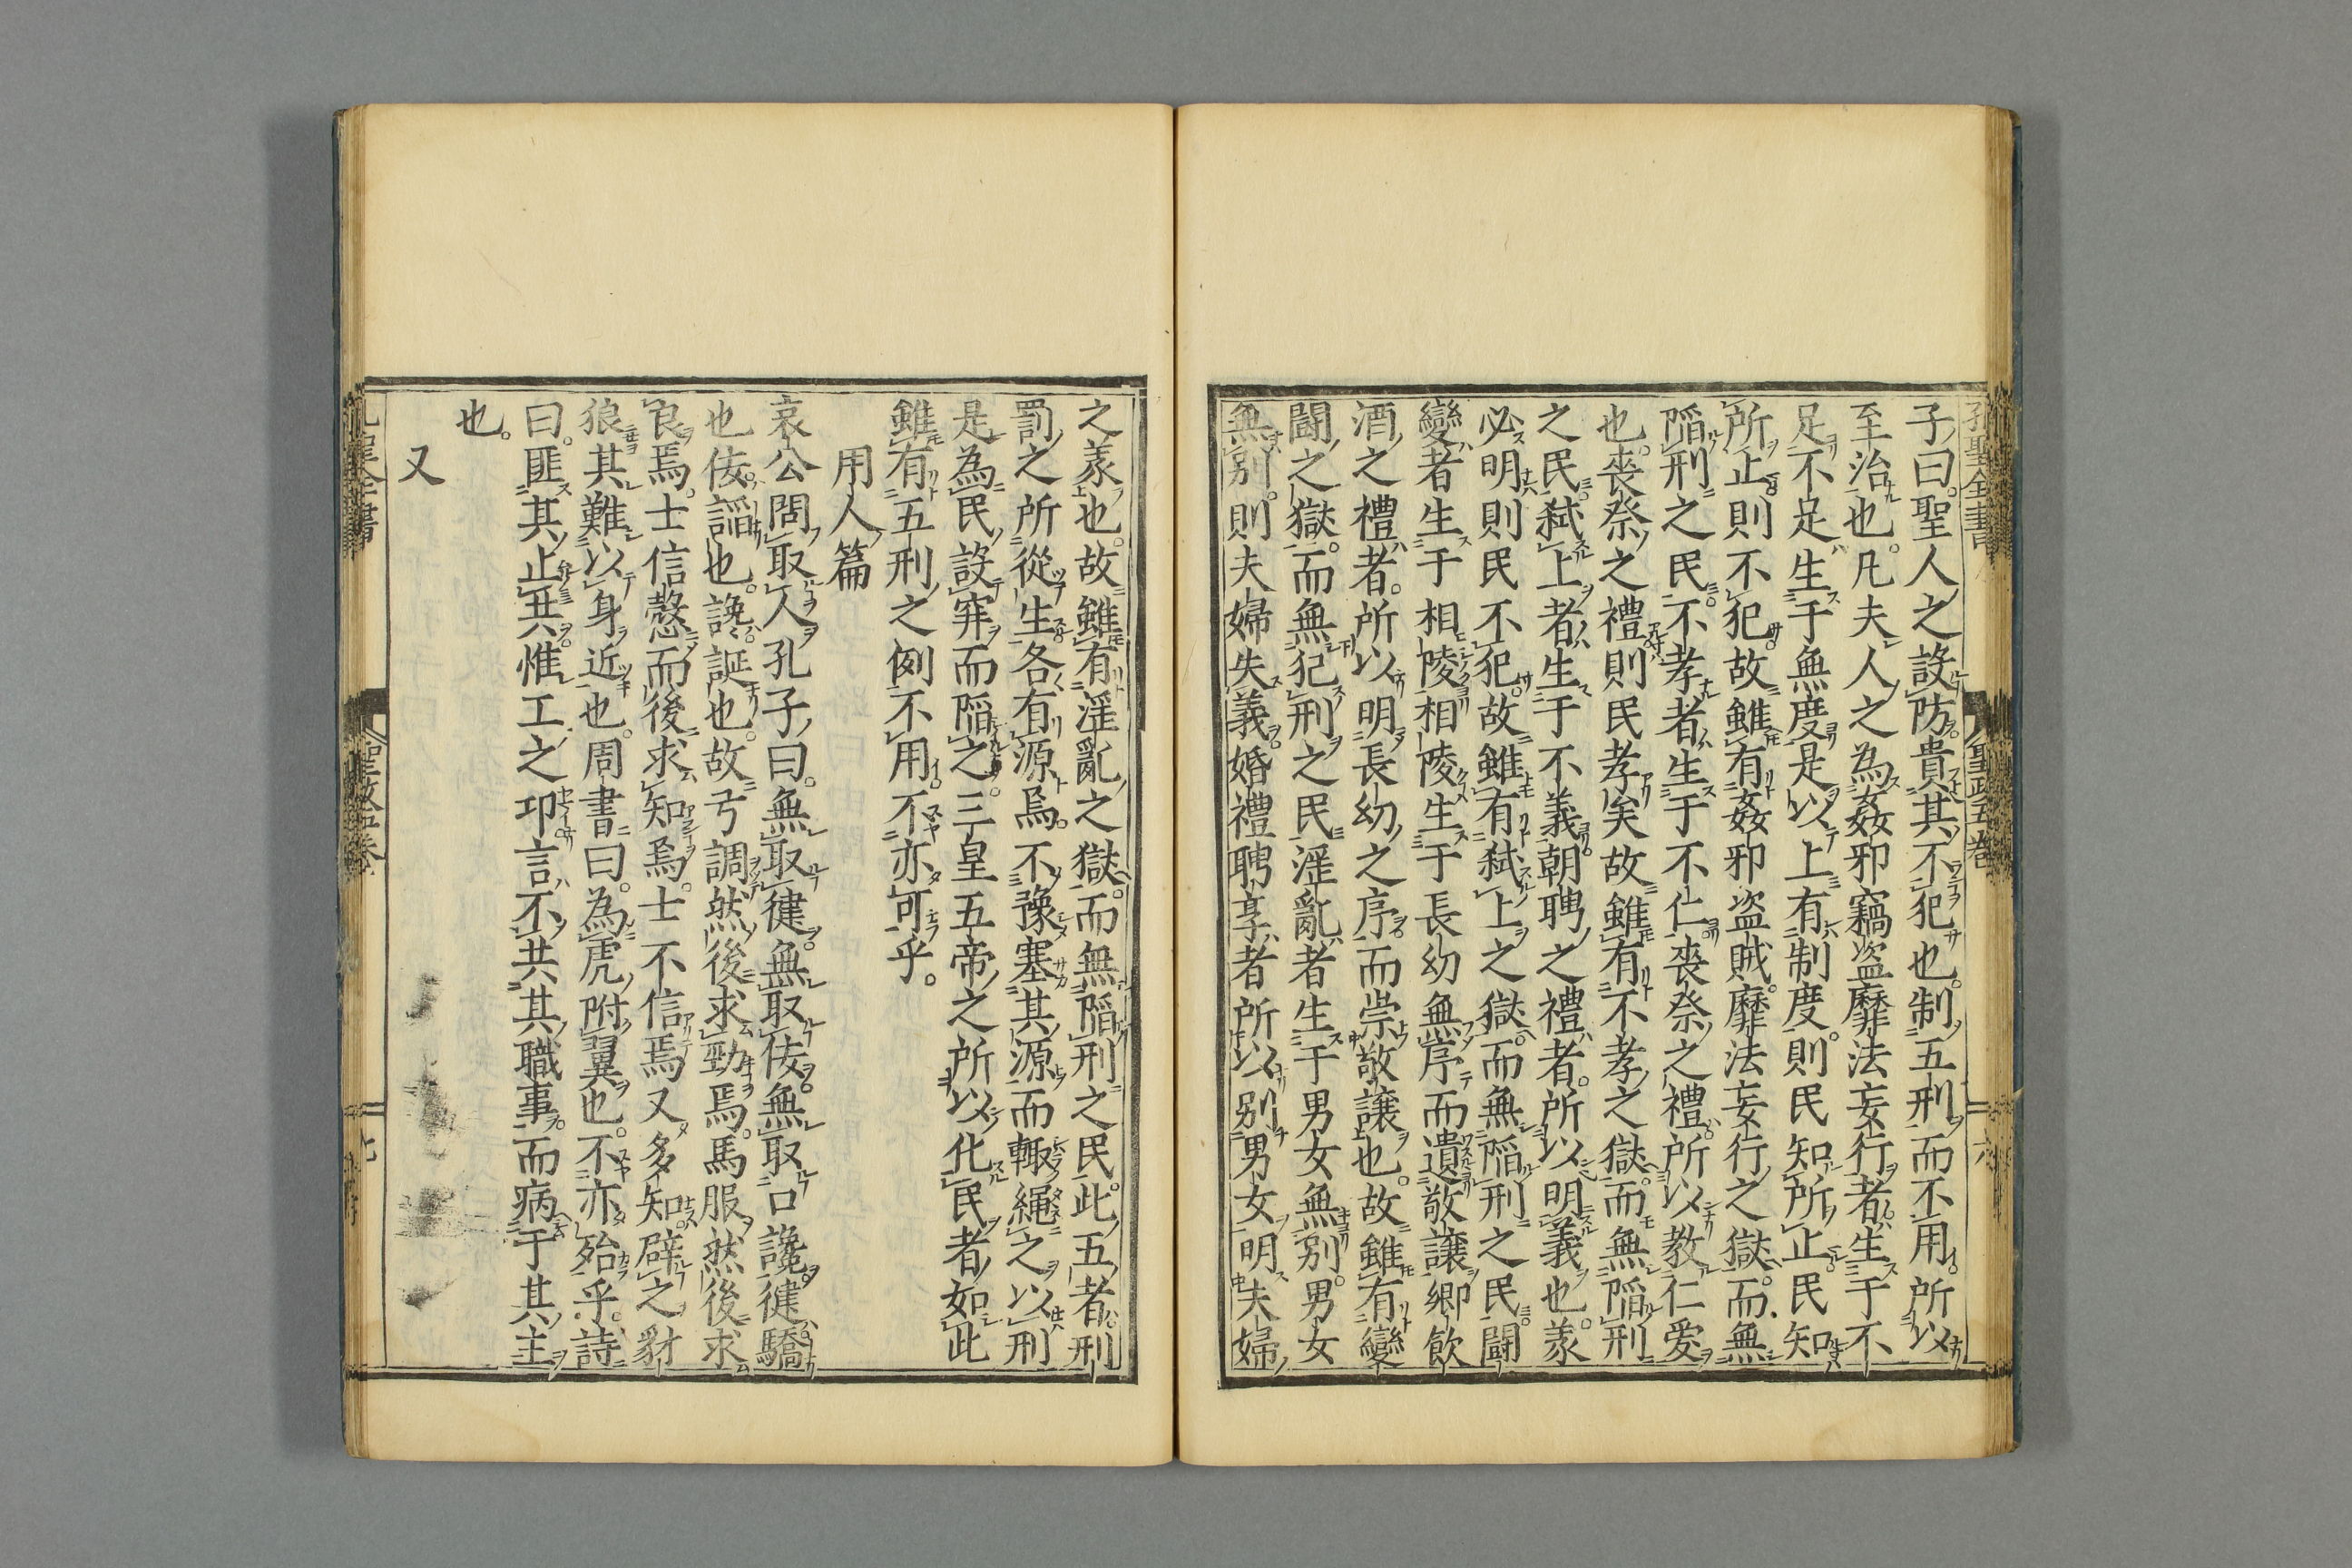 孔聖全書
聖政五卷
六
子曰。聖人之設防。貴其不犯也。制五刑而不用。所以
至治也。凡夫人之為姦邪竊盜靡法妄行者。生于不
足。不足生于無度。是以上有制度。則民知所止。民知
所止。則不犯。故雖有姦邪盜賊。靡法妄行之獄。而無
陷刑之民。不孝者生于不仁。喪祭之禮。所以教仁愛
也。喪祭之禮則民孝矣故雖有不孝之獄。而無陷刑
之民。弑上者生于不義。朝聘之禮者。所以明義也。義
必明則民不犯。故雖有弑上之獄。而無陷刑之民。鬪
變者生于相陵。相陵生于長幼無序。而遺敬讓。鄉飲
酒之禮者。所以明長幼之序。而崇敬讓也。故雖有變
鬪之獄。而無犯刑之民。淫亂者生于男女無別。男女
無別。則夫婦失義。婚禮聘享者所以別男女明夫婦
之義也。故雖有淫亂之獄。而無陷刑之民。此五者。刑
罰之所從生。各有源焉。不豫塞其源。而輙繩之以刑
是為民設穽而陷之。三皇五帝之所以化民者如此
雖有五刑之例不用。不亦可乎。
用人篇
哀公問取人孔子曰。無取健。無取佞。無取口讒。健驕
也。佞謟也。讒誕也。故弓調然後求勁焉。馬服然後求
良焉。士信慤而後求知焉。士不信焉又多知。辟之豺
狼其難以身近也。周書曰。為虎附翼也。不亦殆乎。詩
曰。匪其止共。惟工之卭。言不共其職事。而病于其主
也。
又
聖政五卷